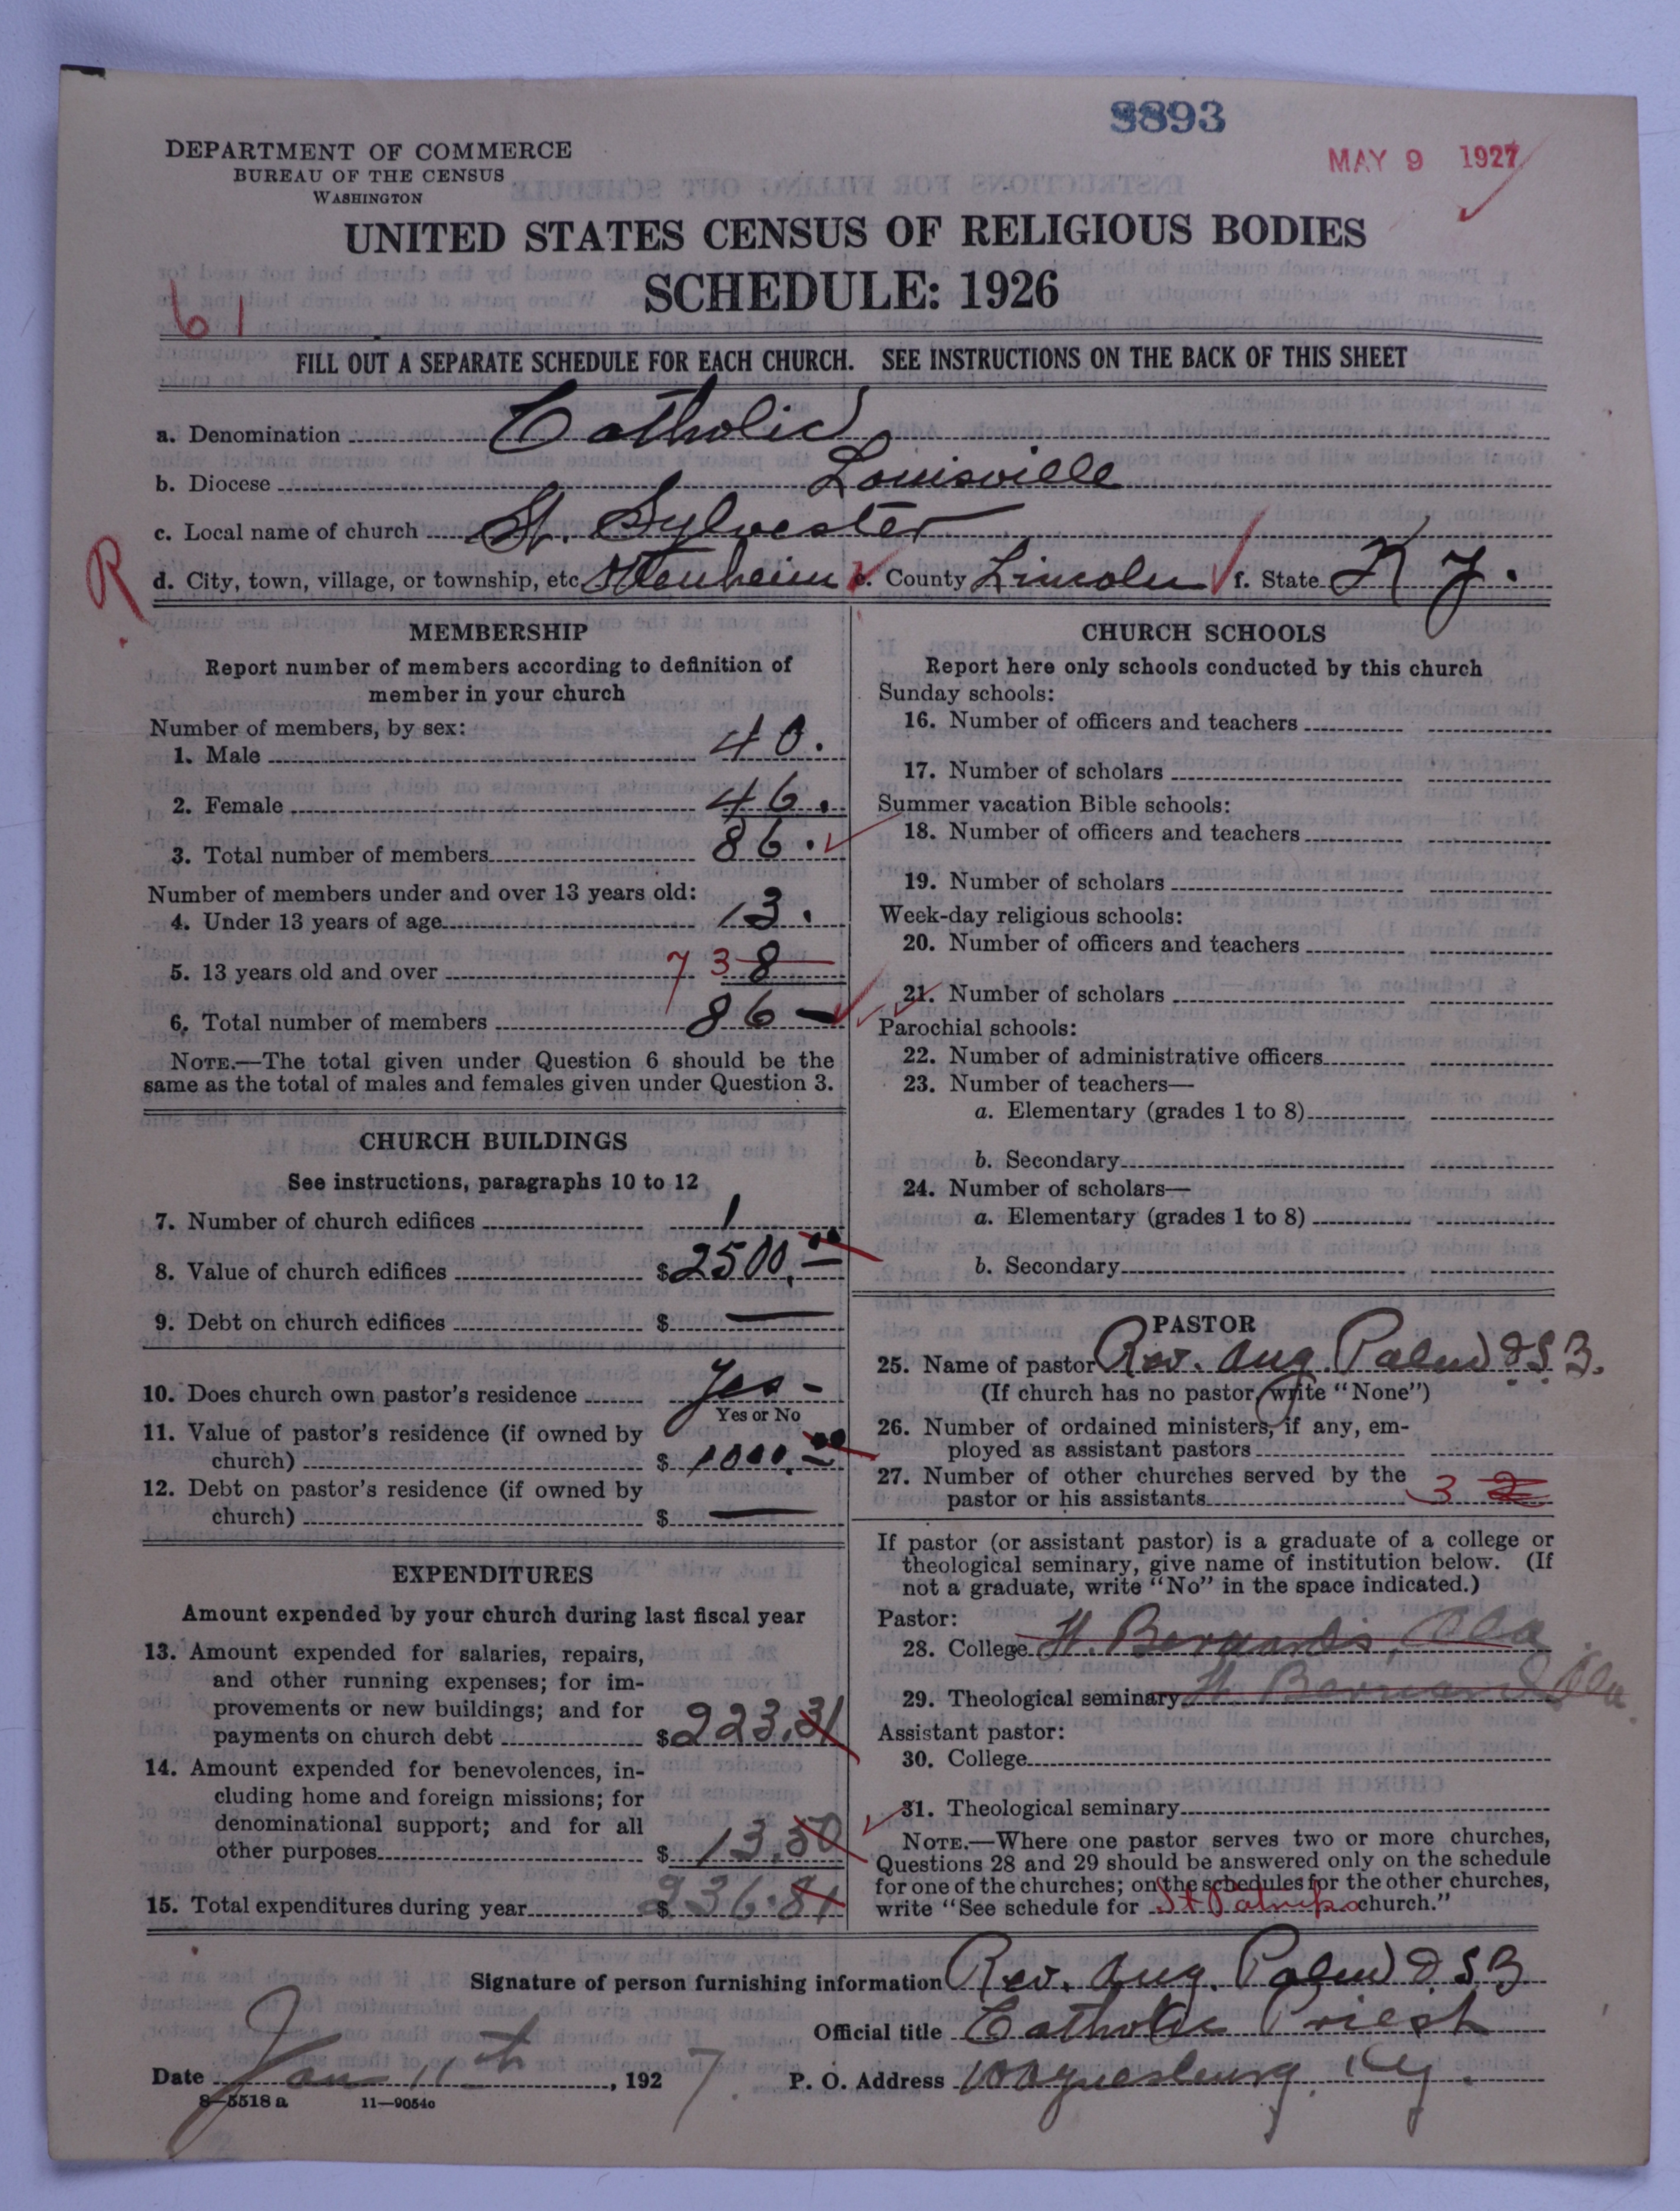 8893
MAY 9 1927
DEPARTMENT OF COMMERCE
BUREAU OF THE CENSUS
WASHINGTON
UNITED STATES CENSUS OF RELIGIOUS BODIES
SCHEDULE: 1926
61
FILL OUT A SEPARATE SCHEDULE FOR EACH CHURCH. SEE INSTRUCTIONS ON THE BACK OF THIS SHEET
a. Denomination Catholic
b. Diocese Louisville
c. Local name of church St. Sylvester
R
d. City, town, village, or township, etc Ottenheim e. County Lincoln f. State Ky.
MEMBERSHIP
Report number of members according to definition of
member in your church
Number of members, by sex:
1. Male 40.
2. Female 46.
3. Total number of members 86.
Number of members under and over 13 years old:
4. Under 13 years of age 13.
5. 13 years old and over 73 8
6. Total number of members 86
NOTE.—The total given under Question 6 should be the
same as the total of males and females given under Question 3.
CHURCH BUILDINGS
See instructions, paragraphs 10 to 12
7. Number of church edifices 1
8. Value of church edifices $2500.00
9. Debt on church edifices $ —
10. Does church own pastor's residence Yes -
Yes or No
11. Value of pastor's residence (if owned by
church) $ 1000.00
12. Debt on pastor's residence (if owned by
church) $ —
EXPENDITURES
Amount expended by your church during last fiscal year
13. Amount expended for salaries, repairs,
and other running expenses; for im-
provements or new buildings; and for
payments on church debt $223.31
14. Amount expended for benevolences, in-
cluding home and foreign missions; for
denominational support; and for all
other purposes $ 13.50
15. Total expenditures during year $ 236.81
CHURCH SCHOOLS
Report here only schools conducted by this church
Sunday schools:
16. Number of officers and teachers
17. Number of scholars
Summer vacation Bible schools:
18. Number of officers and teachers
19. Number of scholars
Week-day religious schools:
20. Number of officers and teachers
21. Number of scholars
Parochial schools:
22. Number of administrative officers
23. Number of teachers—
a. Elementary (grades 1 to 8)
b. Secondary
24. Number of scholars—
a. Elementary (grades 1 to 8)
b. Secondary
PASTOR
25. Name of pastor Rev. Aug. Palm O.S.B.
(If church has no pastor, write "None")
26. Number of ordained ministers, if any, em-
ployed as assistant pastors
27. Number of other churches served by the
pastor or his assistants 3 2
If pastor (or assistant pastor) is a graduate of a college or
theological seminary, give name of institution below. (If
not a graduate, write "No" in the space indicated.)
Pastor:
28. College St. Bernards, Ala
29. Theological seminary St. Bernard Ala.
Assistant pastor:
30. College
31. Theological seminary
NOTE.—Where one pastor serves two or more churches,
Questions 28 and 29 should be answered only on the schedule
for one of the churches; on the schedules for the other churches,
write "See schedule for St Patricks church."
Signature of person furnishing information Rev. Aug. Palm O S B
Official title Catholic Priest
Date Jan 11th, 1927. P. O. Address Waynesburg, Ky.
8-5518 a 11—9054c